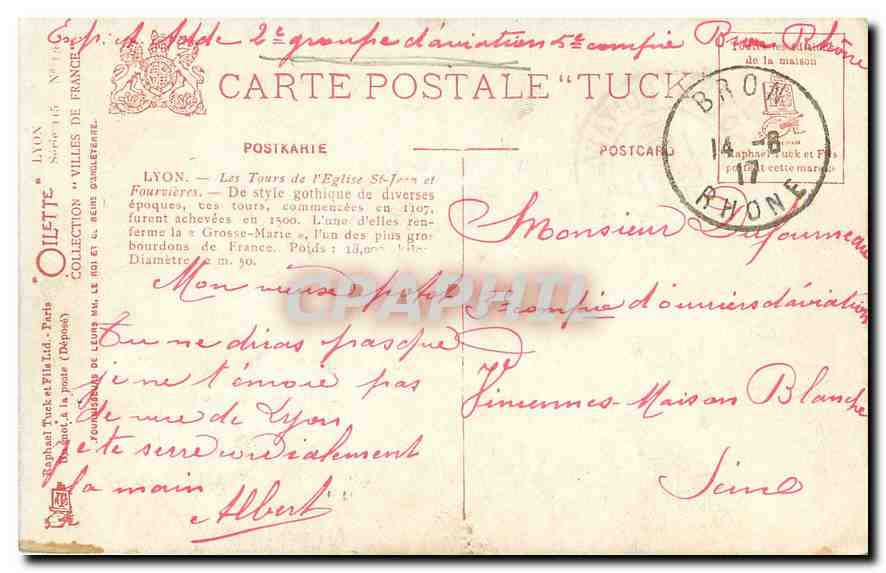 Exp. A. Adde 2e groupe d'aviation 5e compie Bron Rhône
CARTE POSTALE "TUCK"
POSTKARTE
POSTCARD
de la maison
Raphael Tuck et Fils
portent cette marque
BRON
14 -8
17
RHONE
LYON. — Les Tours de l'Eglise St-Jean et
Fourvières. — De style gothique de diverses
époques, ces tours, commencées en 1107,
furent achevées en 1500. L'une d'elles ren-
ferme la « Grosse-Marie », l'un des plus gros
bourdons de France. Poids : 18,000 kilos
Diamètre 2 m. 50.
Mon vieux potot
Tu ne diras pas que
je ne t'envoie pas
de vue de Lyon
je te serre cordialement
la main
Albert
Monsieur Dufourneau
compie d'ouvriers d'aviation
Vincennes-Maison Blanche
Seine
"OILETTE" LYON
Série 115 No
COLLECTION "VILLES DE FRANCE"
Raphael Tuck et Fils Ltd. - Paris
(Déposé)
FOURNISSEURS DE LEURS MM. LE ROI ET LA REINE D'ANGLETERRE.
CPAPHIL